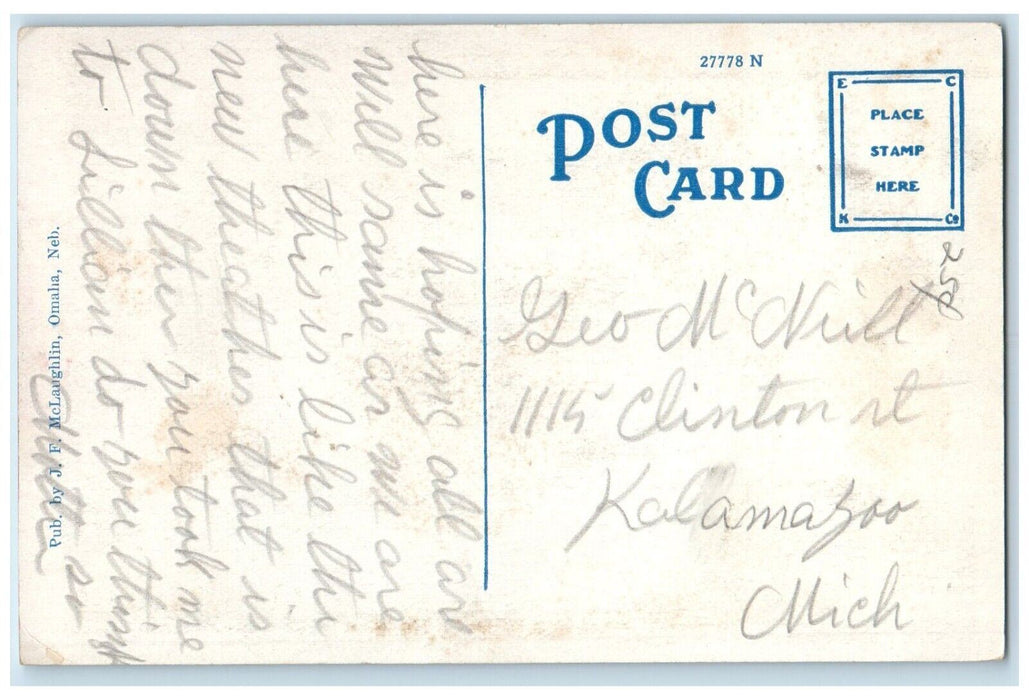 here is hoping all are
well same as we are
here this is like the
new theather that is
down ther you took me
to Lillian do you think
so
Pub. by J. F. McLaughlin, Omaha, Neb.
27778 N
POST
CARD
E C
PLACE
STAMP
HERE
K Co
250
Geo McNeill
1115 Clinton st
Kalamazoo
Mich